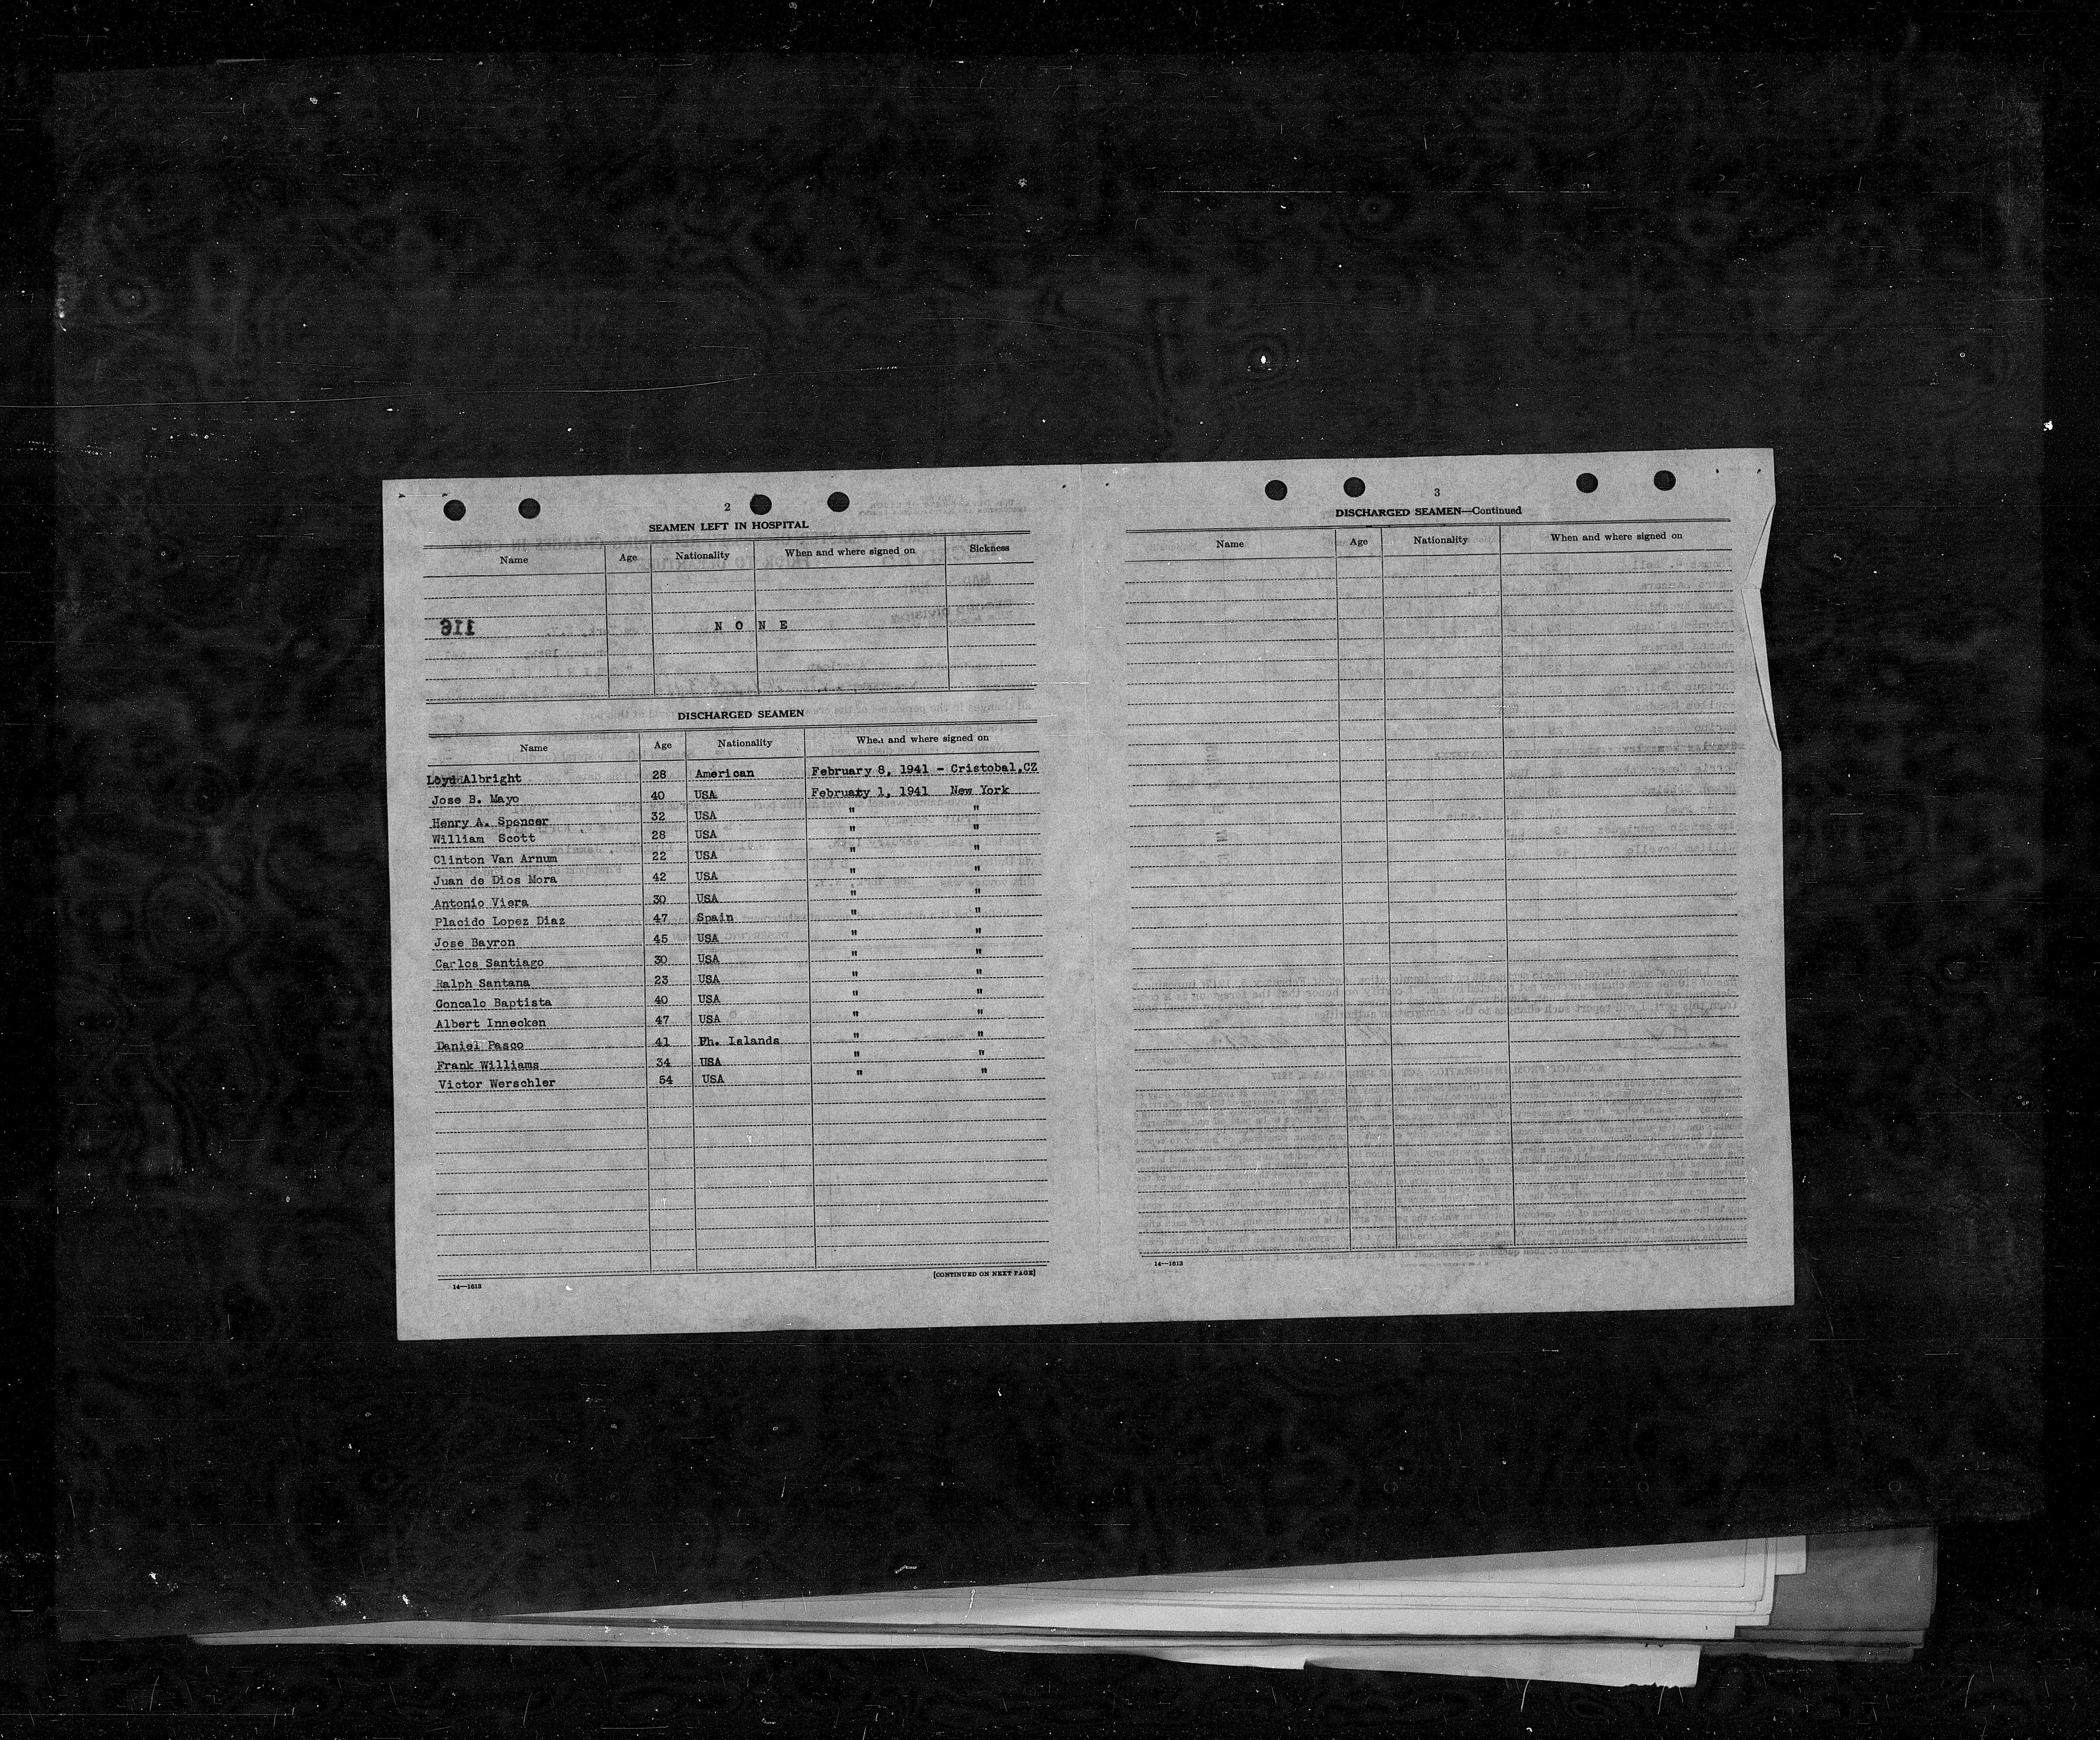 2
SEAMEN LEFT IN HOSPITAL
Name Age Nationality When and where signed on Sickness
116
N O N E
DISCHARGED SEAMEN
Name Age Nationality When and where signed on
Loyd Albright 28 American February 8, 1941 - Cristobal,CZ
Jose B. Mayo 40 USA February 1, 1941 New York
Henry A. Spencer 32 USA " "
William Scott 28 USA " "
Clinton Van Arnum 22 USA " "
Juan de Dios Mora 42 USA " "
Antonio Viera 30 USA " "
Placido Lopez Diaz 47 Spain " "
Jose Bayron 45 USA " "
Carlos Santiago 30 USA " "
Ralph Santana 23 USA " "
Goncalo Baptista 40 USA " "
Albert Innecken 47 USA " "
Daniel Pasco 41 Ph. Islands " "
Frank Williams 34 USA " "
Victor Werschler 54 USA " "
14—1613
[CONTINUED ON NEXT PAGE]
3
DISCHARGED SEAMEN—Continued
Name Age Nationality When and where signed on
14—1613